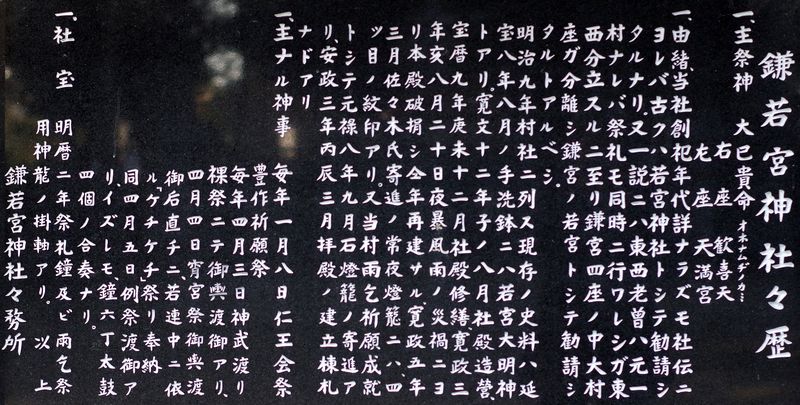 鎌若宮神社々歴
一、主祭神 大巳貴命オホナムヂノカミ
右座 歓喜天
左座 天満宮
一、由緒、当社創祀年代詳ナラズモ社伝ニ
ヨレバ古クハ若宮神社トシテ勧請シ
タルナリ。又一説ニハ東西老曽ハ元一
村ナレバ祭礼モ同時ニ行ワレシガ東
西分立スルニ至リ鎌宮四座ノ中大村
座ガ分離シ鎌宮ノ若宮トシテ勧請シ
タルトアルベシ。
明治九年村社ニ列ス現存ノ史料ハ延
宝八年八月ノ手洗鉢ニハ若宮大明神
トアリ。寛文十二年子ノ八月社殿造営、
宝暦九年庚未十二月社殿修繕、寛政三
年亥八月二十日夜暴風雨ノ災禍ニヨ
リ本殿破損シ仝年再建サル、寛政五年
三月佐々木氏寄進ノ常夜燈籠ニハ、四
ツ目ノ紋印アリ。又当村雨乞祈願成就
トシテ元禄八年九月石燈籠ノ寄進ア
リ、安政三年丙辰三月拝殿ノ建立棟札
ナドアリ
一、主ナル神事 毎年一月八日仁王会祭
豊作祈願祭
毎年四月三日神武渡リ
裸祭ニテ御輿渡御アリ、
四月四日宵宮祭御輿渡
御右直チニ若連中ニ依
ル「ケチケチ祭リ奉納
同四月五日例祭渡御ア
リ、イズレモ、鐘六丁太鼓
四個ノ合奏ナリ。
一、社宝 明暦二年祭礼鐘及ビ雨乞祭
用神龍ノ掛軸アリ。以上
鎌若宮神社々務所